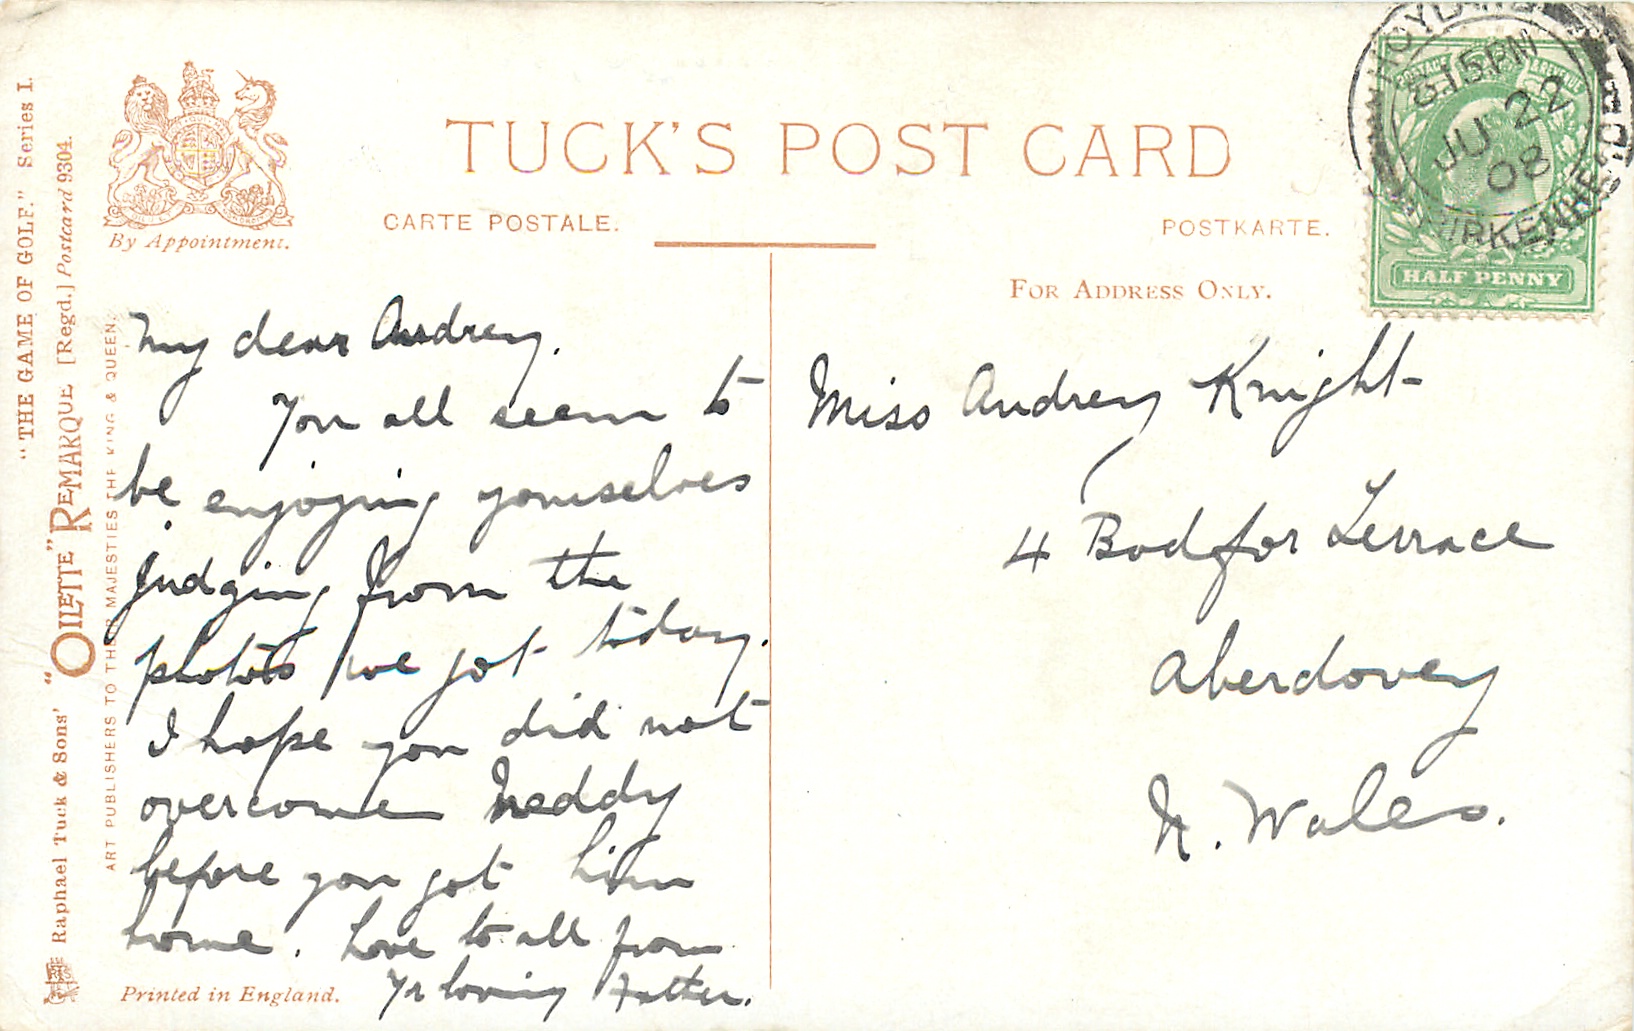 "THE GAME OF GOLF." Series I.
Raphael Tuck & Sons' "OILETTE" REMARQUE [Regd.] Postcard 9304.
ART PUBLISHERS TO THEIR MAJESTIES THE KING & QUEEN.
By Appointment.
TUCK'S POST CARD
CARTE POSTALE.
POSTKARTE.
FOR ADDRESS ONLY.
HOYLAKE
8.15PM
JU 22
08
BIRKENHEAD
HALF PENNY
My dear Audrey.
You all seem to
be enjoying yourselves
judging from the
photos we got today.
I hope you did not
overcome Neddy
before you got him
home. Love to all from
Yr loving Father.
Miss Audrey Knight
4 Bodfor Terrace
Aberdovey
N. Wales.
Printed in England.